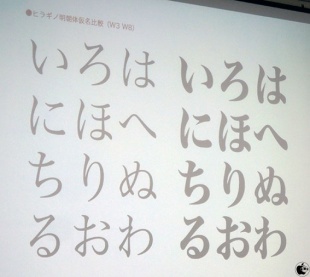 ●ヒラギノ明朝体仮名比較（W3 W8）
いろは
にほへ
ちりぬ
るおわ
いろは
にほへ
ちりぬ
るおわ